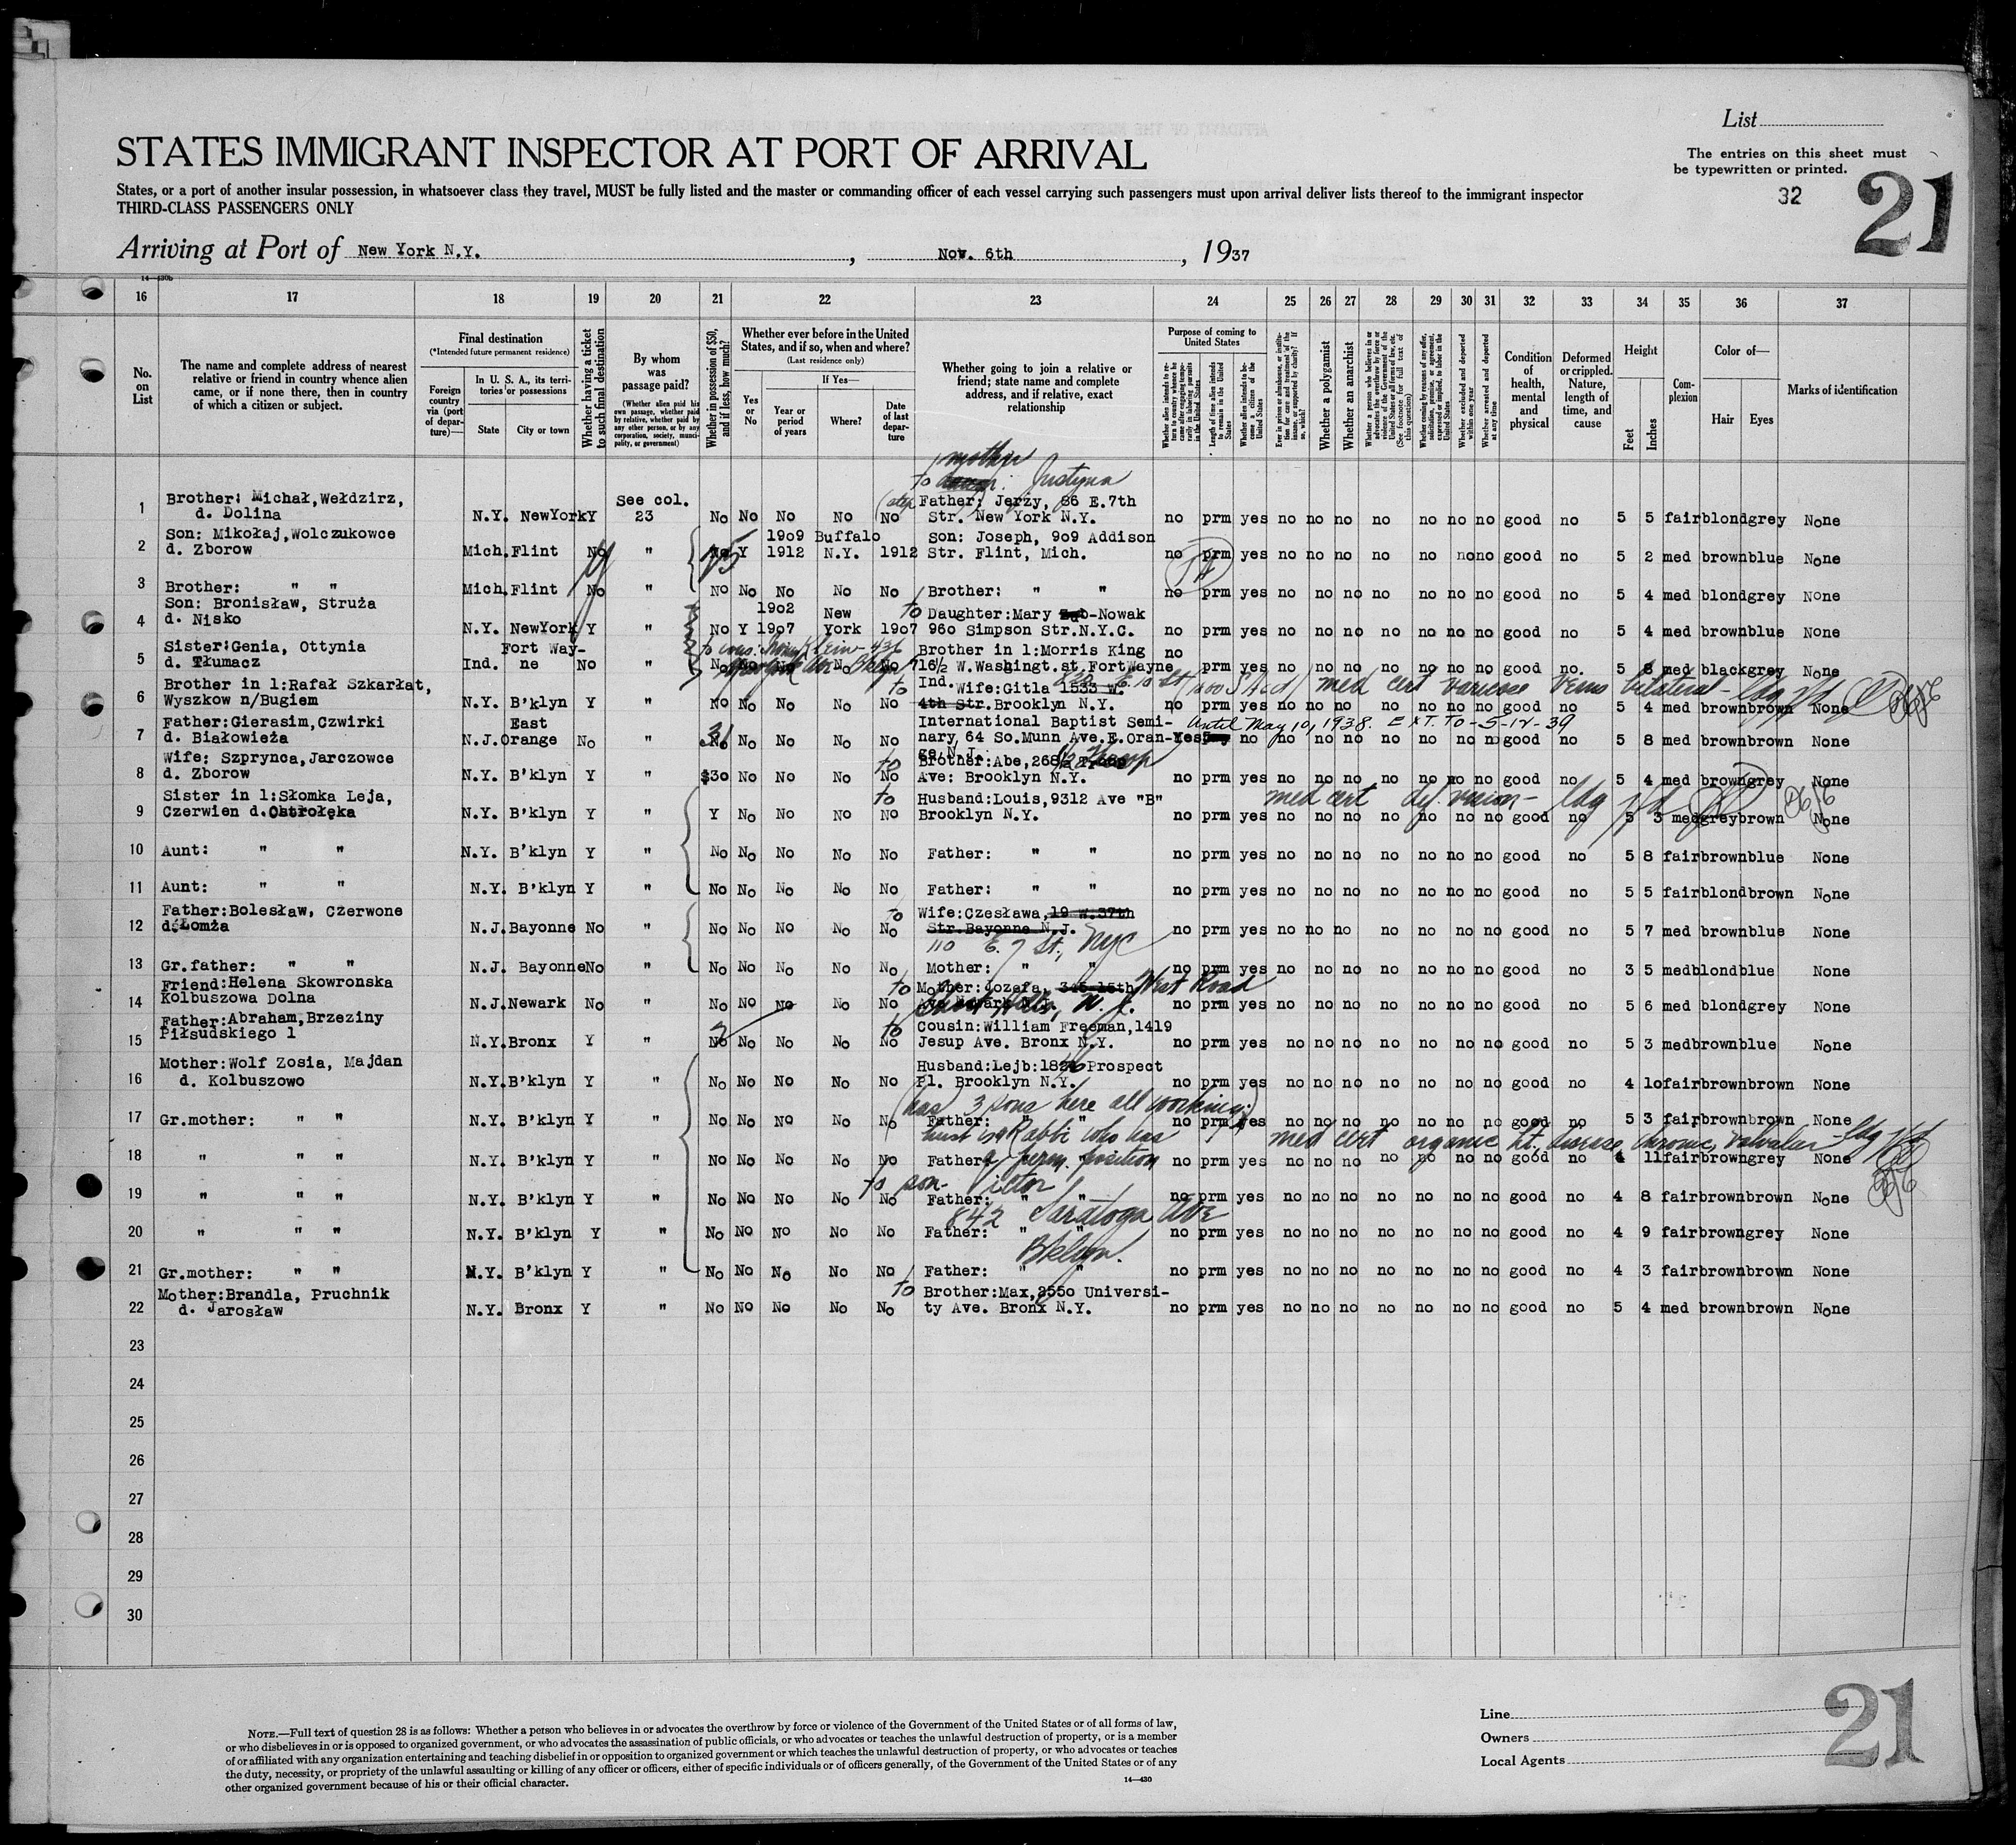 List
STATES IMMIGRANT INSPECTOR AT PORT OF ARRIVAL
The entries on this sheet must
be typewritten or printed.
States, or a port of another insular possession, in whatsoever class they travel, MUST be fully listed and the master or commanding officer of each vessel carrying such passengers must upon arrival deliver lists thereof to the immigrant inspector
THIRD-CLASS PASSENGERS ONLY
32
21
Arriving at Port of New York N.Y. , Nov. 6th , 1937
14—430b
16 17 18 19 20 21 22 23 24 25 26 27 28 29 30 31 32 33 34 35 36 37
No. on List
The name and complete address of nearest relative or friend in country whence alien came, or if none there, then in country of which a citizen or subject.
Final destination
(*Intended future permanent residence)
Foreign country via (port of departure)—
In U. S. A., its territories or possessions
State
City or town
Whether having a ticket to such final destination
By whom was passage paid?
(Whether alien paid his own passage, whether paid by relative, whether paid by any other person, or by any corporation, society, municipality, or government)
Whether in possession of $50, and if less, how much?
Whether ever before in the United States, and if so, when and where?
(Last residence only)
Yes or No
If Yes—
Year or period of years
Where?
Date of last departure
Whether going to join a relative or friend; state name and complete address, and if relative, exact relationship
Purpose of coming to United States
Whether alien intends to return to country whence he came after engaging temporarily in laboring pursuits in the United States
Length of time alien intends to remain in the United States
Whether alien intends to become a citizen of the United States
Ever in prison or almshouse, or institution for care and treatment of the insane, or supported by charity? If so, which?
Whether a polygamist
Whether an anarchist
Whether a person who believes in or advocates the overthrow by force or violence of the Government of the United States or all forms of law, etc. (See footnote for full text of this question)
Whether coming by reasons of any offer, solicitation, promise, or agreement, expressed or implied, to labor in the United States
Whether excluded and deported within one year
Whether arrested and deported at any time
Condition of health, mental and physical
Deformed or crippled. Nature, length of time, and cause
Height
Feet
Inches
Complexion
Color of—
Hair
Eyes
Marks of identification
mother
to Justyna
1 Brother: Michał, Wełdzirz, See col. (step Father; Jerzy, 86 E.7th
d. Dolina N.Y. NewYork Y 23 No No No No No Str. New York N.Y. no prm yes no no no no no no no good no 5 5 fair blond grey None
2 Son: Mikołaj, Wolczukowce 1909 Buffalo Son: Joseph, 909 Addison
d. Zborow Mich. Flint No " No Y 1912 N.Y. 1912 Str. Flint, Mich. no prm yes no no no no no no no good no 5 2 med brown blue None
3 Brother: " " Mich. Flint No " No No No No No Brother: " " no prm yes no no no no no no no good no 5 4 med blond grey None
4 Son: Bronisław, Struża 1902 New to Daughter: Mary Zub-Nowak
d. Nisko N.Y. NewYork Y " No Y 1907 York 1907 960 Simpson Str. N.Y.C. no prm yes no no no no no no no good no 5 4 med brown blue None
5 Sister: Genia, Ottynia Fort Way- Brother in l: Morris King no
d. Tłumacz Ind. ne No " No No No No No 716½ W. Washingt. st. Fort Wayne prm yes no no no no no no no good no 5 8 med black grey None
6 Brother in l: Rafał Szkarłat, Ind. to Wife: Gitla 1533 W. med cert varicose veins bilateral
Wyszkow n/Bugiem N.Y. B'klyn Y " No No No No No 4th Str. Brooklyn N.Y. no prm yes no no no no no no no good no 5 4 med brown brown None
7 Father: Gierasim, Czwirki East International Baptist Semi- until May 10, 1938. EXT. TO - 5-12-39
d. Białowieża N.J. Orange No " No No No No No nary, 64 So. Munn Ave. E. Oran- Yes no no no no no no no no good no 5 8 med brown brown None
ge N.J.
8 Wife: Szprynca, Jarczowce to Brother: Abe, 268
d. Zborow N.Y. B'klyn Y " $30 No No No No Ave: Brooklyn N.Y. no prm yes no no no no no no no good no 5 4 med brown grey None
9 Sister in l: Słomka Leja, to Husband: Louis, 9312 Ave "B" med cert def. vision
Czerwien d. Ostrołęka N.Y. B'klyn Y " Y No No No No Brooklyn N.Y. no prm yes no no no no no no no good no 5 3 med grey brown None
10 Aunt: " " N.Y. B'klyn Y " No No No No No Father: " " no prm yes no no no no no no no good no 5 8 fair brown blue None
11 Aunt: " " N.Y. B'klyn Y " No No No No No Father: " " no prm yes no no no no no no no good no 5 5 fair blond brown None
12 Father: Bolesław, Czerwone to Wife: Czesława, 19 W. 37th
d. Łomża N.J. Bayonne No " No No No No No Str. Bayonne N.J. no prm yes no no no no no no no good no 5 7 med brown blue None
110 E. 7 St., NYC
13 Gr.father: " " N.J. Bayonne No " No No No No No Mother: " " no prm yes no no no no no no no good no 3 5 med blond blue None
14 Friend: Helena Skowronska to Mother: Jozefa, 345-15th West Road
Kolbuszowa Dolna N.J. Newark No " No No No No No Ave Newark N.J. no prm yes no no no no no no no good no 5 6 med blond grey None
15 Father: Abraham, Brzeziny to Cousin: William Freeman, 1419
Piłsudskiego 1 N.Y. Bronx Y " No No No No No Jesup Ave. Bronx N.Y. no prm yes no no no no no no no good no 5 3 med brown blue None
16 Mother: Wolf Zosia, Majdan Husband: Lejb: Prospect
d. Kolbuszowo N.Y. B'klyn Y " No No No No No Pl. Brooklyn N.Y. no prm yes no no no no no no no good no 4 10 fair brown brown None
(has 3 sons here all working;
17 Gr.mother: " " N.Y. B'klyn Y " No No No No No Father: " " no prm yes no no no no no no no good no 5 3 fair brown brown None
husb is a Rabbi who has med cert organic ht. disease chronic, valvular
18 " " " N.Y. B'klyn Y " No No No No No Father perm. position no prm yes no no no no no no no good no 4 11 fair brown grey None
to son-
19 " " " N.Y. B'klyn Y " No No No No No Father: " " no prm yes no no no no no no no good no 4 8 fair brown brown None
842 Saratoga Ave
20 " " " N.Y. B'klyn Y " No No No No No Father: " " no prm yes no no no no no no no good no 4 9 fair brown grey None
Bklyn.
21 Gr.mother: " " N.Y. B'klyn Y " No No No No No Father: " " no prm yes no no no no no no no good no 4 3 fair brown brown None
22 Mother: Brandla, Pruchnik to Brother: Max, 2550 Universi-
d. Jarosław N.Y. Bronx Y " No No No No No ty Ave. Bronx N.Y. no prm yes no no no no no no no good no 5 4 med brown brown None
23
24
25
26
27
28
29
30
NOTE.—Full text of question 28 is as follows: Whether a person who believes in or advocates the overthrow by force or violence of the Government of the United States or of all forms of law,
or who disbelieves in or is opposed to organized government, or who advocates the assassination of public officials, or who advocates or teaches the unlawful destruction of property, or is a member
of or affiliated with any organization entertaining and teaching disbelief in or opposition to organized government or which teaches the unlawful destruction of property, or who advocates or teaches
the duty, necessity, or propriety of the unlawful assaulting or killing of any officer or officers, either of specific individuals or of officers generally, of the Government of the United States or of any
other organized government because of his or their official character.
14—430
Line
Owners
Local Agents
21